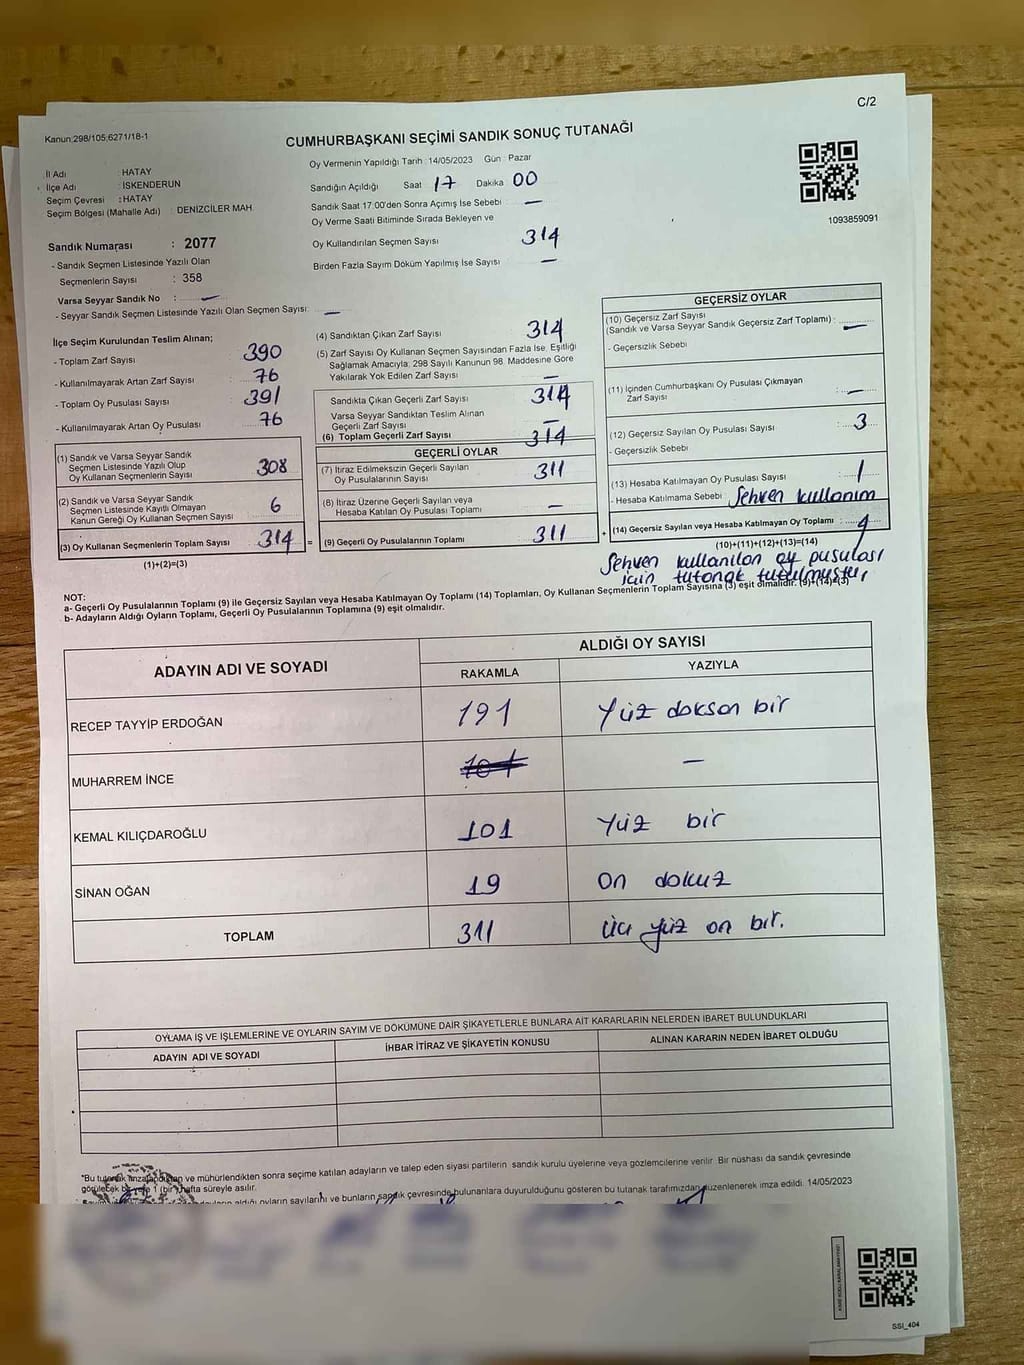 C/2
Kanun:298/105,6271/18-1
CUMHURBAŞKANI SEÇİMİ SANDIK SONUÇ TUTANAĞI
İl Adı : HATAY
İlçe Adı : İSKENDERUN
Seçim Çevresi : HATAY
Seçim Bölgesi (Mahalle Adı) : DENİZCİLER MAH
Oy Vermenin Yapıldığı Tarih : 14/05/2023 Gün : Pazar
Sandığın Açıldığı Saat 17 Dakika 00
Sandık Saat 17:00'den Sonra Açımış İse Sebebi —
Oy Verme Saati Bitiminde Sırada Bekleyen ve
Oy Kullandırılan Seçmen Sayısı 314
Birden Fazla Sayım Döküm Yapılmış İse Sayısı —
1093859091
Sandık Numarası : 2077
- Sandık Seçmen Listesinde Yazılı Olan
Seçmenlerin Sayısı : 358
Varsa Seyyar Sandık No : —
- Seyyar Sandık Seçmen Listesinde Yazılı Olan Seçmen Sayısı: —
İlçe Seçim Kurulundan Teslim Alınan;
- Toplam Zarf Sayısı : 390
- Kullanılmayarak Artan Zarf Sayısı : 76
- Toplam Oy Pusulası Sayısı : 391
- Kullanılmayarak Artan Oy Pusulası : 76
(1) Sandık ve Varsa Seyyar Sandık
Seçmen Listesinde Yazılı Olup
Oy Kullanan Seçmenlerin Sayısı : 308
(2) Sandık ve Varsa Seyyar Sandık
Seçmen Listesinde Kayıtlı Olmayan
Kanun Gereği Oy Kullanan Seçmen Sayısı : 6
(3) Oy Kullanan Seçmenlerin Toplam Sayısı : 314 =
(1)+(2)=(3)
(4) Sandıktan Çıkan Zarf Sayısı 314
(5) Zarf Sayısı Oy Kullanan Seçmen Sayısından Fazla İse, Eşitliği
Sağlamak Amacıyla; 298 Sayılı Kanunun 98. Maddesine Göre
Yakılarak Yok Edilen Zarf Sayısı —
Sandıkta Çıkan Geçerli Zarf Sayısı 314
Varsa Seyyar Sandıktan Teslim Alınan
Geçerli Zarf Sayısı —
(6) Toplam Geçerli Zarf Sayısı 314
GEÇERLİ OYLAR
(7) İtiraz Edilmeksizin Geçerli Sayılan
Oy Pusulalarının Sayısı : 311
(8) İtiraz Üzerine Geçerli Sayılan veya
Hesaba Katılan Oy Pusulası Toplamı : —
(9) Geçerli Oy Pusulalarının Toplamı : 311 +
GEÇERSİZ OYLAR
(10) Geçersiz Zarf Sayısı
(Sandık ve Varsa Seyyar Sandık Geçersiz Zarf Toplamı) : —
- Geçersizlik Sebebi
(11) İçinden Cumhurbaşkanı Oy Pusulası Çıkmayan
Zarf Sayısı : —
(12) Geçersiz Sayılan Oy Pusulası Sayısı : 3
- Geçersizlik Sebebi
(13) Hesaba Katılmayan Oy Pusulası Sayısı : 1
- Hesaba Katılmama Sebebi Sehven kullanım
(14) Geçersiz Sayılan veya Hesaba Katılmayan Oy Toplamı : 4
(10)+(11)+(12)+(13)=(14)
Sehven kullanılan oy pusulası
için tutanak tutulmuştur,
NOT:
a- Geçerli Oy Pusulalarının Toplamı (9) ile Geçersiz Sayılan veya Hesaba Katılmayan Oy Toplamı (14) Toplamları, Oy Kullanan Seçmenlerin Toplam Sayısına (3) eşit olmalıdır. (9)+(14)=(3)
b- Adayların Aldığı Oyların Toplamı, Geçerli Oy Pusulalarının Toplamına (9) eşit olmalıdır.
ADAYIN ADI VE SOYADI ALDIĞI OY SAYISI
RAKAMLA YAZIYLA
RECEP TAYYİP ERDOĞAN 191 Yüz doksan bir
MUHARREM İNCE 101 —
KEMAL KILIÇDAROĞLU 101 Yüz bir
SİNAN OĞAN 19 On dokuz
TOPLAM 311 Üç yüz on bir.
OYLAMA İŞ VE İŞLEMLERİNE VE OYLARIN SAYIM VE DÖKÜMÜNE DAİR ŞİKAYETLERLE BUNLARA AİT KARARLARIN NELERDEN İBARET BULUNDUKLARI
ADAYIN ADI VE SOYADI İHBAR İTİRAZ VE ŞİKAYETİN KONUSU ALINAN KARARIN NEDEN İBARET OLDUĞU
*Bu tutanak imzalandıktan ve mühürlendikten sonra seçime katılan adayların ve talep eden siyasi partilerin sandık kurulu üyelerine veya gözlemcilerine verilir. Bir nüshası da sandık çevresinde
görülecek bir yere 1 (bir) hafta süreyle asılır.
adayların aldığı oyların sayılarını ve bunların sandık çevresinde bulunanlara duyurulduğunu gösteren bu tutanak tarafımızdan düzenlenerek imza edildi. 14/05/2023
SSI_404